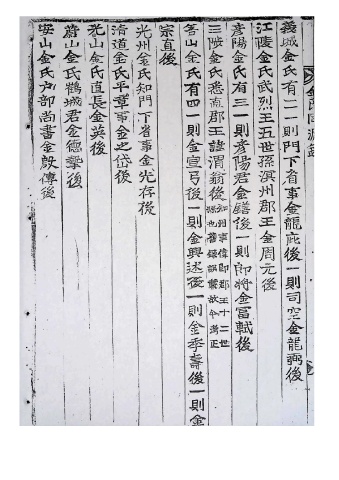 義城金氏有二一則門下省事金龍庇後一則司空金龍弼後
江陵金氏武烈王五世孫溟州郡王金周元後
彦陽金氏有三一則彦陽君金鐥後一則郎將金冨軾後
三陟金氏悉直郡王諡渭翁後
善山金氏有四一則金宣弓後一則金興述後一則金季壽後一則金
宗直後
光州金氏知門下省事金光存後
清道金氏平章事金之岱後
光山金氏直長金英後
蔚山金氏鶴城君金德摯後
安山金氏户部尚書金殷傅後